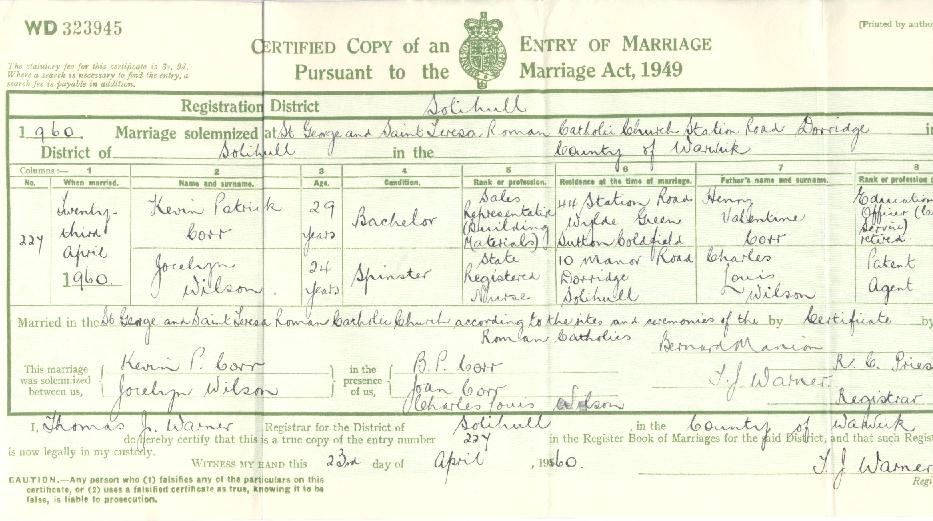 WD 323945
[Printed by autho
CERTIFIED COPY of an ENTRY OF MARRIAGE
Pursuant to the Marriage Act, 1949
The statutory fee for this certificate is 3s. 9d.
Where a search is necessary to find the entry, a
search fee is payable in addition.
Registration District Solihull
1960. Marriage solemnized at St George and Saint Teresa Roman Catholic Church Station Road Dorridge in
District of Solihull in the County of Warwick
Columns:— 1 2 3 4 5 6 7 8
No. When married. Name and surname. Age. Condition. Rank or profession. Residence at the time of marriage. Father's name and surname. Rank or profession o
227 Twenty-third April 1960. Kevin Patrick Corr 29 years Bachelor Sales Representative (Building Materials) 44 Station Road Wylde Green Sutton Coldfield Henry Valentine Corr Education Officer Service) retired
Jocelyn Wilson. 24 years Spinster State Registered Nurse 10 Manor Road Dorridge Solihull Charles Louis Wilson Patent Agent
Married in the St George and Saint Teresa Roman Catholic Church according to the rites and ceremonies of the by Certificate by
Roman Catholics
Bernard Manion
R. C. Pries
This marriage was solemnized between us, Kevin P. Corr Jocelyn Wilson in the presence of us, B. P. Corr Joan Corr Charles Louis Wilson
T. J. Warner.
Registrar
I, Thomas J. Warner Registrar for the District of Solihull, in the County of Warwick
do hereby certify that this is a true copy of the entry number 227 in the Register Book of Marriages for the said District, and that such Regist
is now legally in my custody.
WITNESS MY HAND this 23rd day of April, 1960.
T. J Warner
Regi
CAUTION.—Any person who (1) falsifies any of the particulars on this
certificate, or (2) uses a falsified certificate as true, knowing it to be
false, is liable to prosecution.